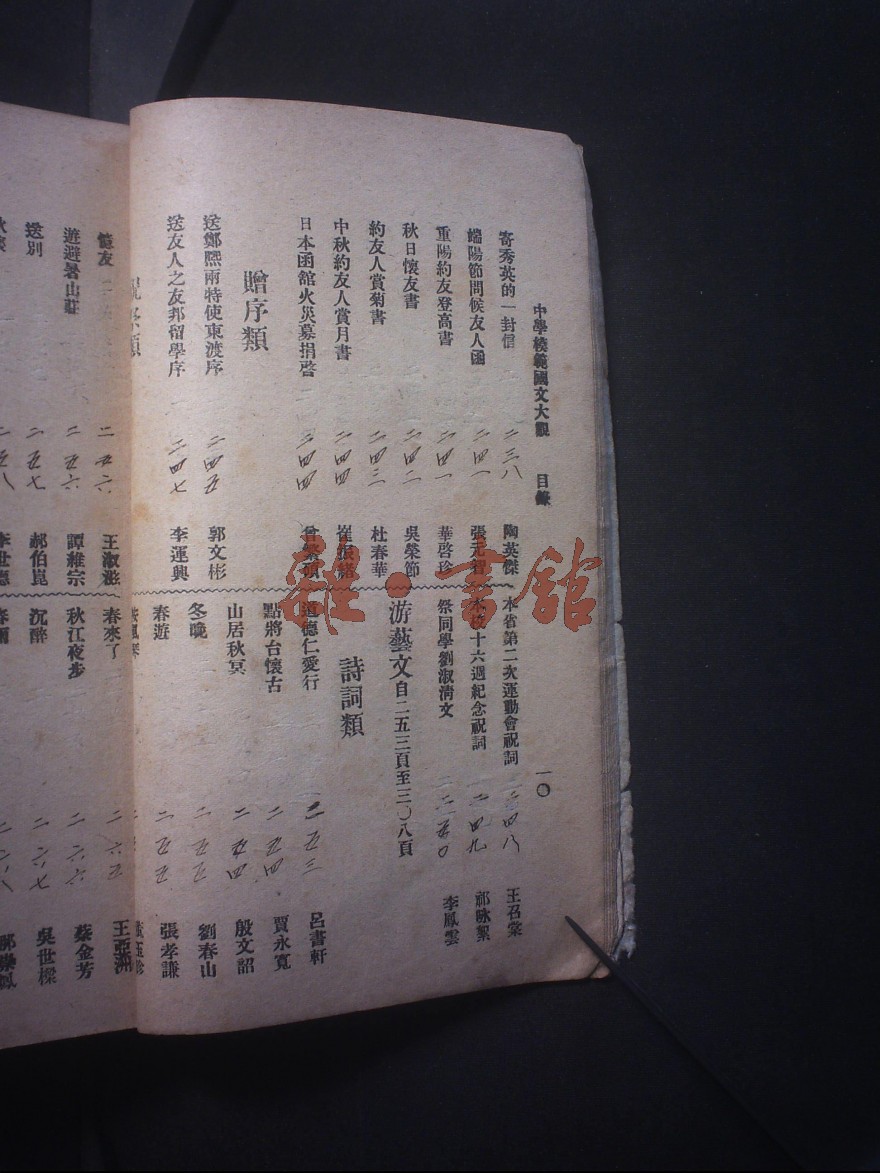 中學模範國文大觀 目錄 一〇
寄秀英的一封信 二三八 陶英傑
端陽節問候友人函 二四一 張元智
重陽約友登高書 二四一 華啓珍
秋日懷友書 二四二 吳榮節
約友人賞菊書 二四三 杜春華
中秋約友人賞月書 二四四
日本函館火災募捐啓 二四四 曾繁碩
贈序類
送鄭熙兩特使東渡序 二四五 郭文彬
送友人之友邦留學序 二四七 李運興
本省第二次運動會祝詞 二四八 王召棠
本校十六週紀念祝詞 二四九 祁咏絮
祭同學劉淑清文 二五〇 李鳳雲
游藝文 自二五三頁至三〇八頁
詩詞類
道德仁愛行 二五三 呂書軒
點將台懷古 二五四 賈永寬
山居秋冥 二五四 殷文韶
冬曉 二五五 劉春山
春遊 二五五 張孝謙
憶友 二五六 王淑
遊避暑山莊 二五六 譚維宗
送別 二五七 郝伯崑
二五八 李世德
春來了 二六五 王亞洲
秋江夜步 二六六 蔡金芳
沉醉 二六七 吳世樑
雜·書館